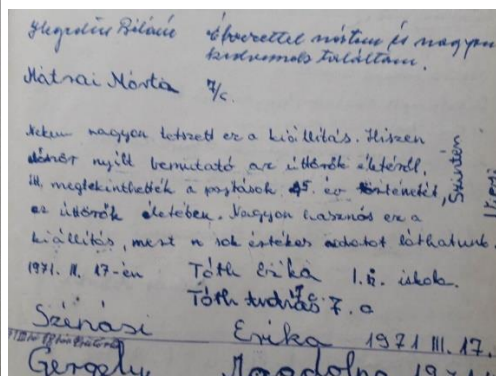 Hegedűs Biláné Élvezettel néztem és nagyon
kedvesnek találtam.
Mátrai Márta 7/c.
Nekem nagyon tetszett ez a kiállítás. Hiszen
először nyílt bemutató az úttörők életéről,
itt megtekinthették a pajtások 25. év történetét,
az úttörők életében. Nagyon hasznos ez a
kiállítás, mert n sok értékes adatot láthatunk.
Szintén
1971. III. 17-én Tóth Erika I. iskola.
7c
Tóth András 7. a
Szénási Erika 1971 III. 17.
Gergely Magdolna 1971